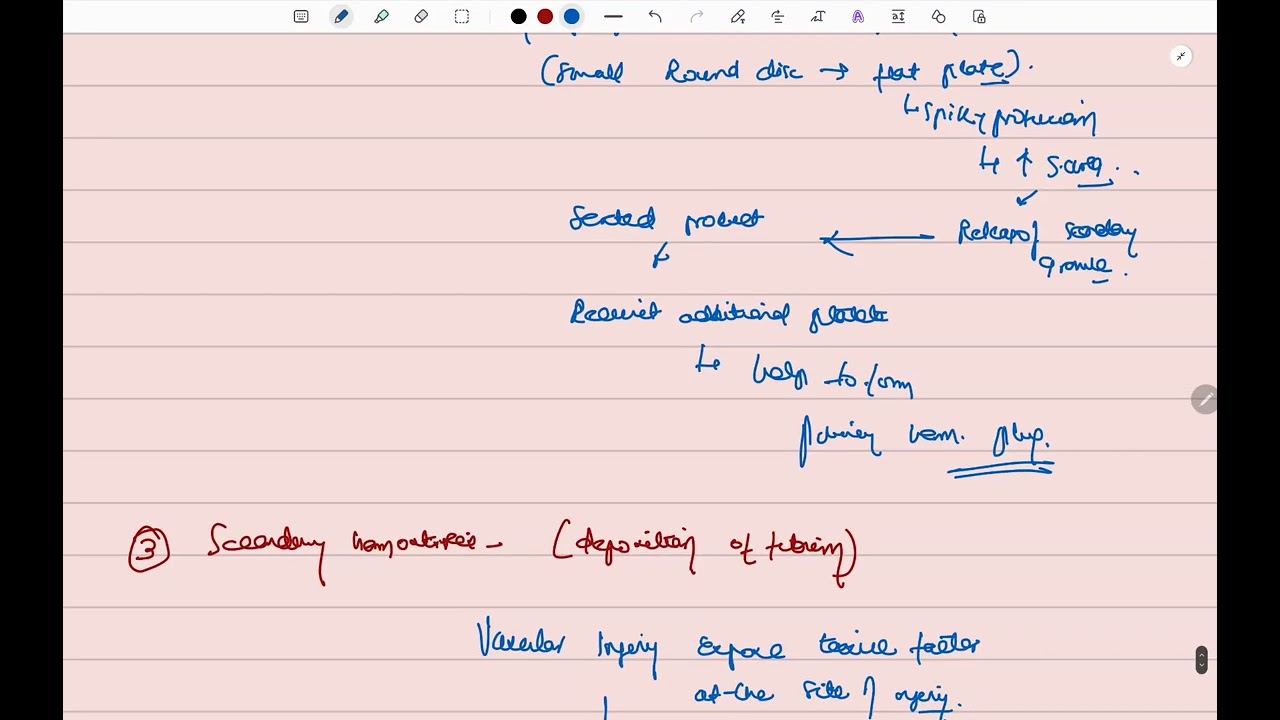 (small Round disc → flat plate).
↳ spiky protrusion
↳ ↑ S.area..
Secreted product ← Release of secondary
granule.
Recruit additional platelet
↳ help to form
primary hem. plug.
③ Secondary hemostasis - (deposition of fibrin)
Vascular Injury expose tissue factor
at the site of injury.